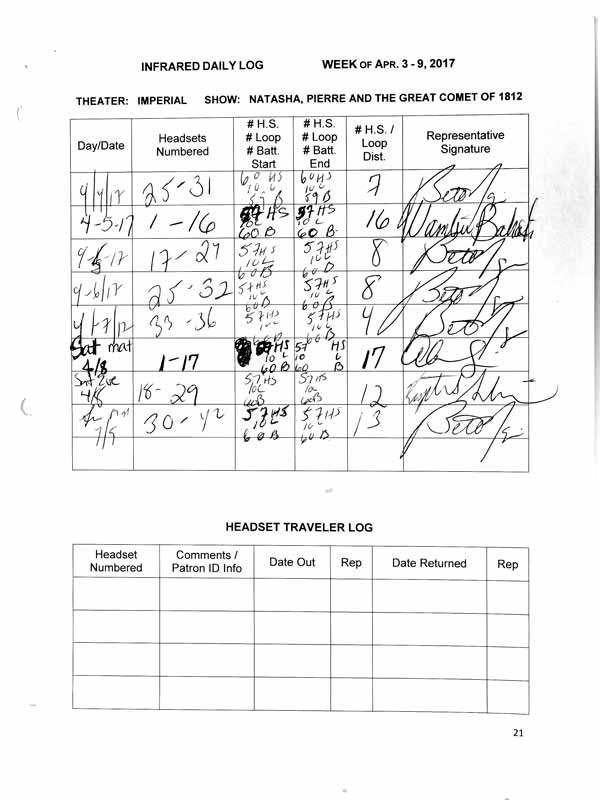 INFRARED DAILY LOG WEEK OF APR. 3 - 9, 2017
THEATER: IMPERIAL SHOW: NATASHA, PIERRE AND THE GREAT COMET OF 1812
Day/Date Headsets Numbered # H.S. # Loop # Batt. Start # H.S. # Loop # Batt. End # H.S. / Loop Dist. Representative Signature
4/4/17 25-31 60 HS 10 L 59 B 60 HS 10 L 59 B 7
4-5-17 1-16 57 HS 10L 60 B 57 HS 10L 60 B 16
17-24 57HS 10L 60B 57HS 10L 60B 8
4-6/17 25-32 57HS 10L 57HS 10L 60B 8
4/7/17 33-36 57HS 10L 60B 57HS 10L 60B 4
Sat mat 4/8 1-17 57HS 10 L 60 B 57 HS 10 L 60 B 17
4/8 18-29 57HS 10L 60B 57HS 10L 60B 12
30-42 57HS 10L 60B 57HS 10L 60B 13
HEADSET TRAVELER LOG
Headset Numbered Comments / Patron ID Info Date Out Rep Date Returned Rep
21